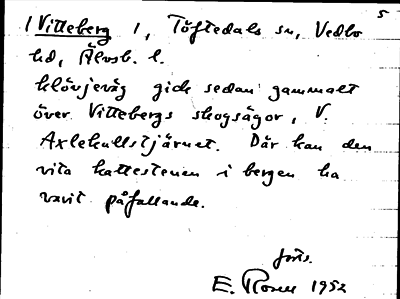 5
/ Vitteberg /, Töftedals sn, Vedbo
hd, Älvsb. l.
klövjeväg gick sedan gammalt
över Vittebergs skogsägor, V.
Axlekullstjärnet. Där kan den
vita kattestenen i bergen ha
varit påfallande.
forts.
E. Rosell 1952